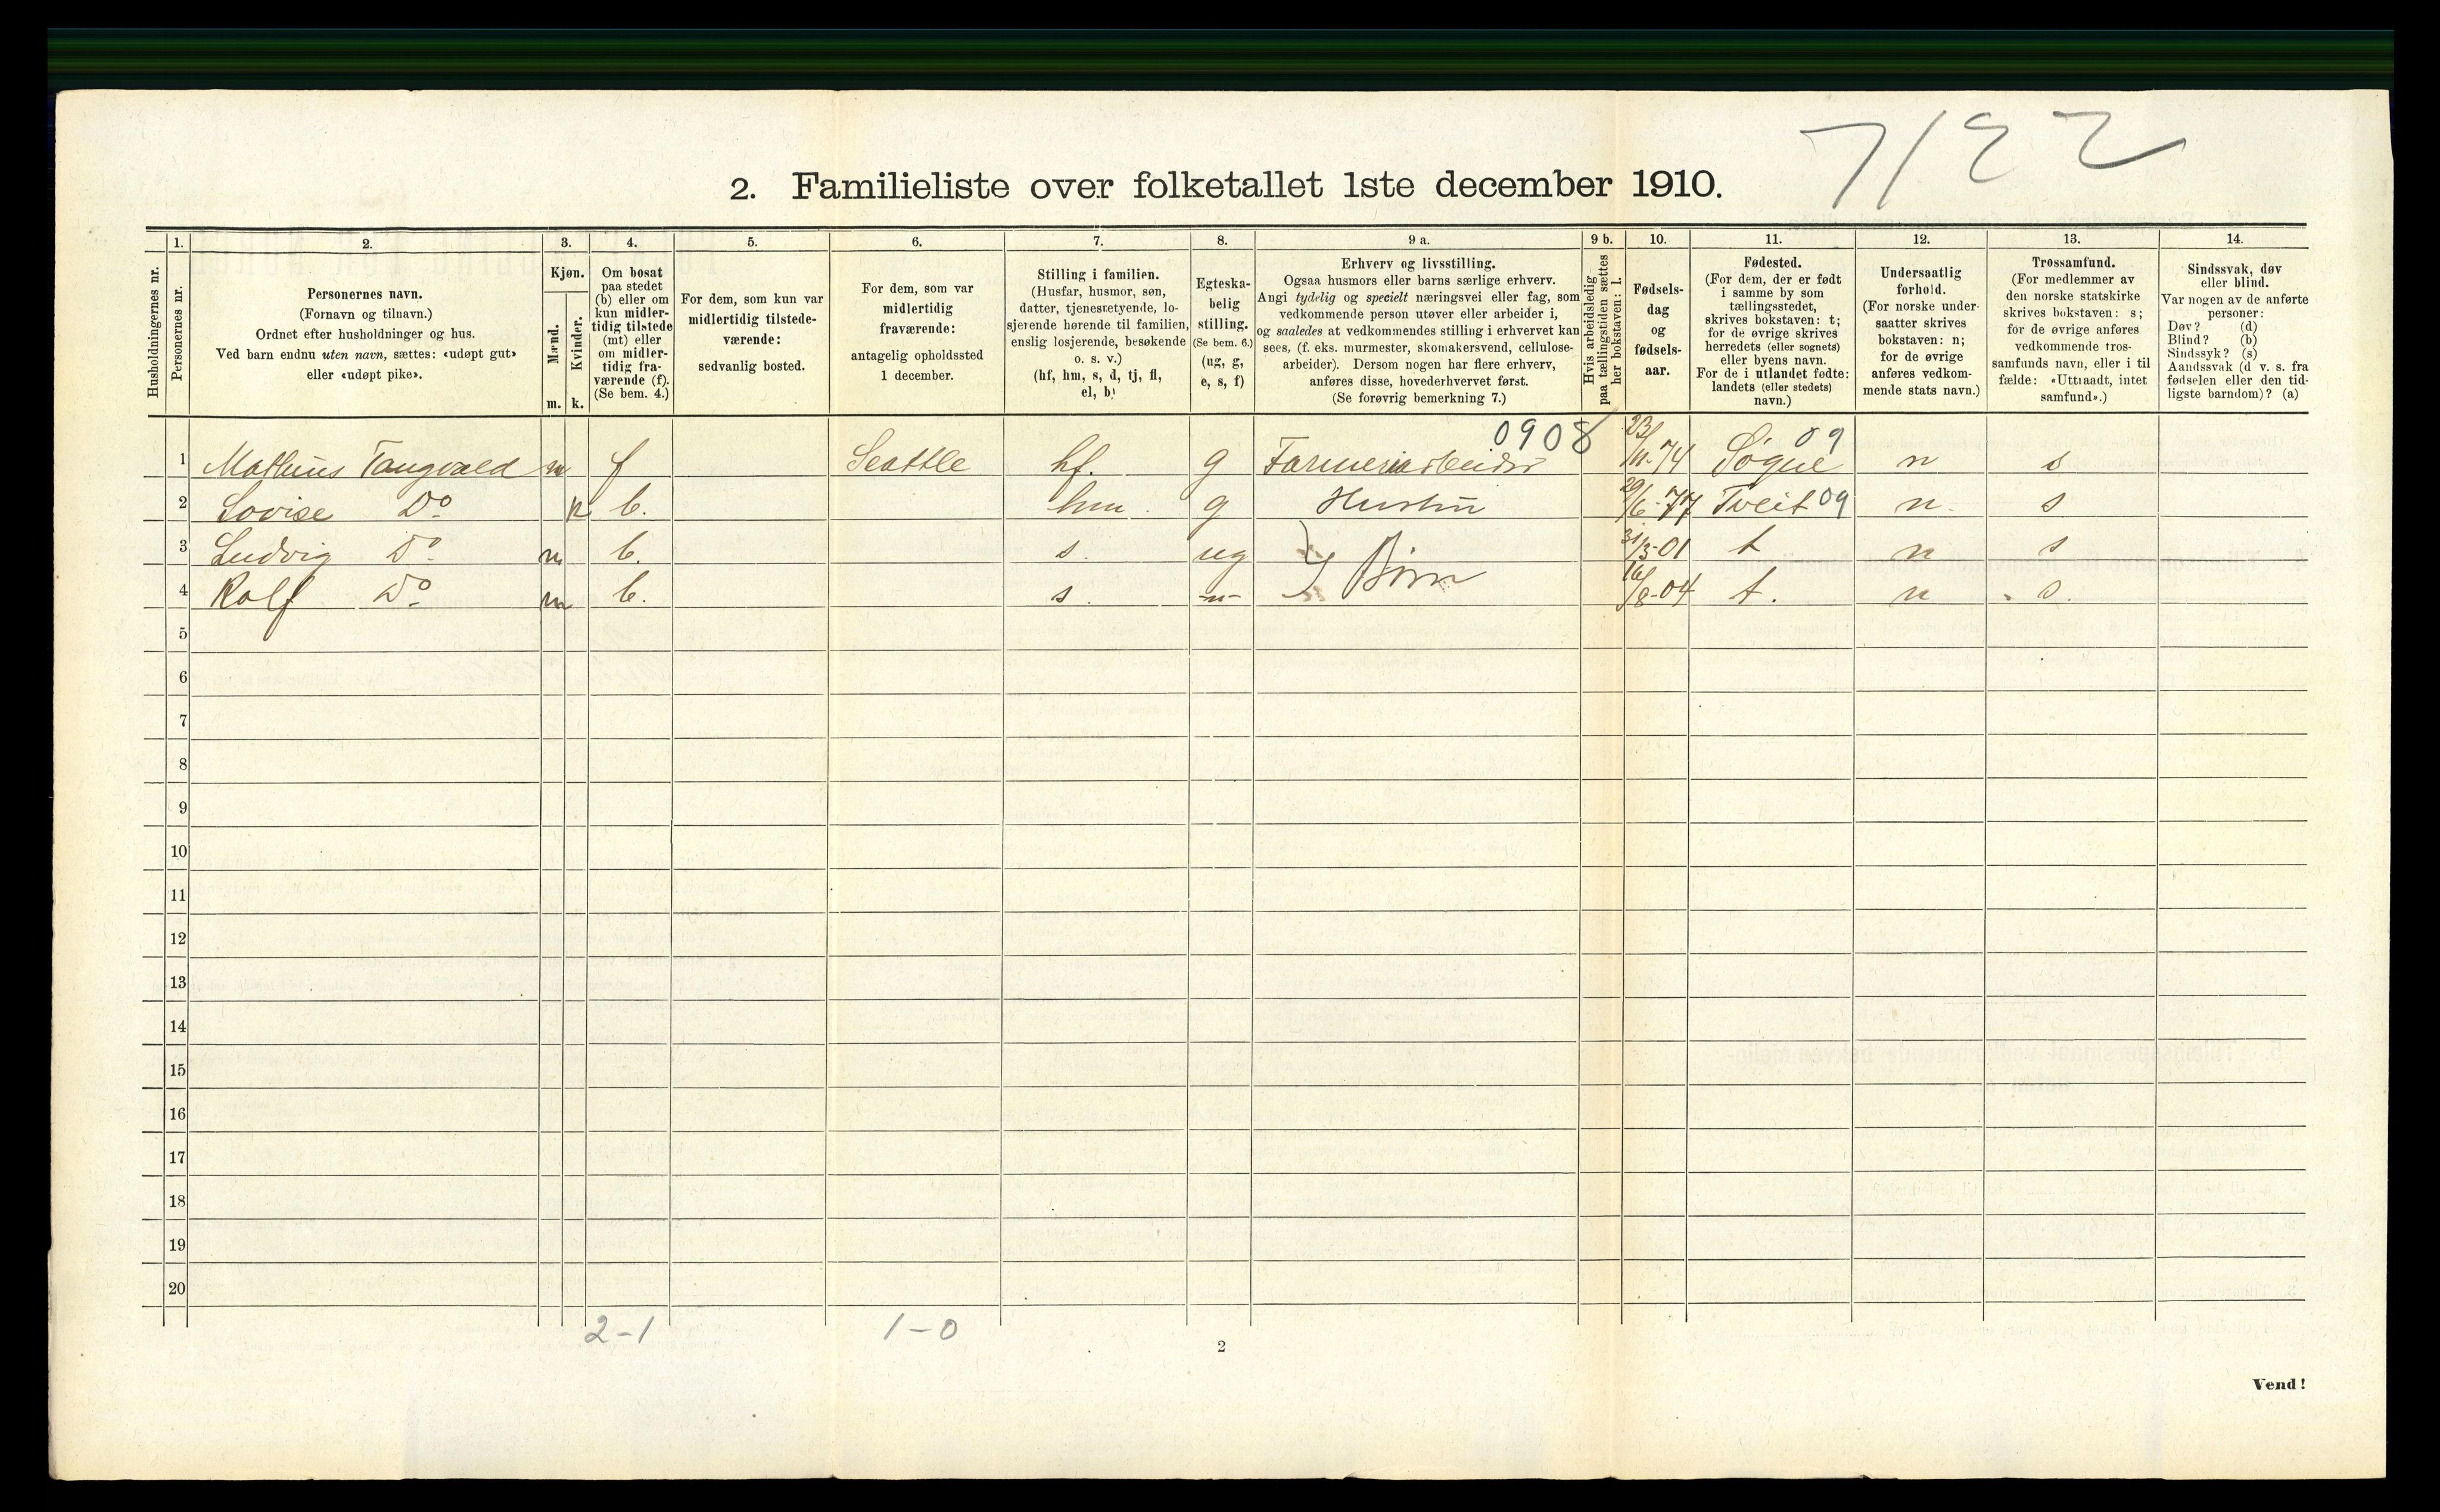 7122
2. Familieliste over folketallet 1ste december 1910.
Husholdningernes nr.
1.
Personernes nr.
2.
Personernes navn.
(Fornavn og tilnavn.)
Ordnet efter husholdninger og hus.
Ved barn endnu uten navn, sættes: «udøpt gut»
eller «udøpt pike».
3.
Kjøn.
Mænd.
Kvinder.
m. k.
4.
Om bosat
paa stedet
(b) eller om
kun midler-
tidig tilstede
(mt) eller
om midler-
tidig fra-
værende (f).
(Se bem. 4.)
5.
For dem, som kun var
midlertidig tilstede-
værende:
sedvanlig bosted.
6.
For dem, som var
midlertidig
fraværende:
antagelig opholdssted
1 december.
7.
Stilling i familien.
(Husfar, husmor, søn,
datter, tjenestetyende, lo-
sjerende hørende til familien,
enslig losjerende, besøkende
o. s. v.)
(hf, hm, s, d, tj, fl,
el, b)
8.
Egteska-
belig
stilling.
(Se bem. 6.)
(ug, g,
e, s, f)
9 a.
Erhverv og livsstilling.
Ogsaa husmors eller barns særlige erhverv.
Angi tydelig og specielt næringsvei eller fag, som
vedkommende person utøver eller arbeider i,
og saaledes at vedkommendes stilling i erhvervet kan
sees, (f. eks. murmester, skomakersvend, cellulose-
arbeider). Dersom nogen har flere erhverv,
anføres disse, hovederhvervet først.
(Se forøvrig bemerkning 7.)
9 b.
Hvis arbeidsledig
paa tællingstiden sættes
her bokstaven: l.
10.
Fødsels-
dag
og
fødsels-
aar.
11.
Fødested.
(For dem, der er født
i samme by som
tællingsstedet,
skrives bokstaven: t;
for de øvrige skrives
herredets (eller sognets)
eller byens navn.
For de i utlandet fødte:
landets (eller stedets)
navn.)
12.
Undersaatlig
forhold.
(For norske under-
saatter skrives
bokstaven: n;
for de øvrige
anføres vedkom-
mende stats navn.)
13.
Trossamfund.
(For medlemmer av
den norske statskirke
skrives bokstaven: s;
for de øvrige anføres
vedkommende tros-
samfunds navn, eller i til
fælde: «Uttraadt, intet
samfund».)
14.
Sindssvak, døv
eller blind.
Var nogen av de anførte
personer:
Døv? (d)
Blind? (b)
Sindssyk? (s)
Aandssvak (d v. s. fra
fødselen eller den tid-
ligste barndom)? (a)
0908
09
1 Mathius Tangvald m f Seattle hf. g Farmeriarbeider 23/11-74 Søgne n s
2 Lovise Do k b. hm. g Hustru 29/6-77 Tveit 09 n. s
3 Ludvig Do m b. s. ug } Børn 31/3-01 t n s
4 Rolf Do m b. s. -"- 16/8-04 t. n s.
5
6
7
8
9
10
11
12
13
14
15
16
17
18
19
20
2-1
1-0
2
Vend!